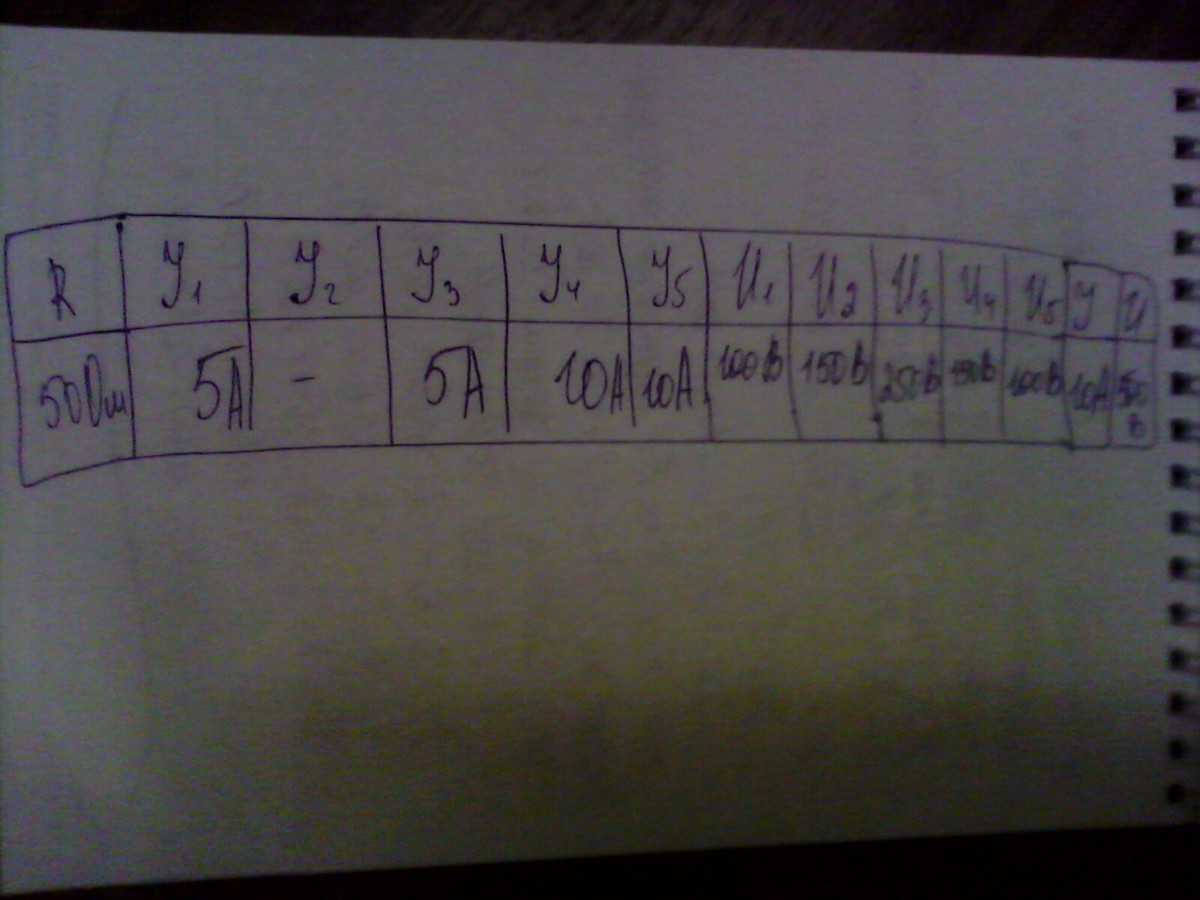 R У₁ У₂ У₃ У₄ У₅ U₁ U₂ U₃ U₄ U₅ У U
50Ом 5А - 5А 10А 10А 100В 150В 250В 150В 100В 10А 500 В